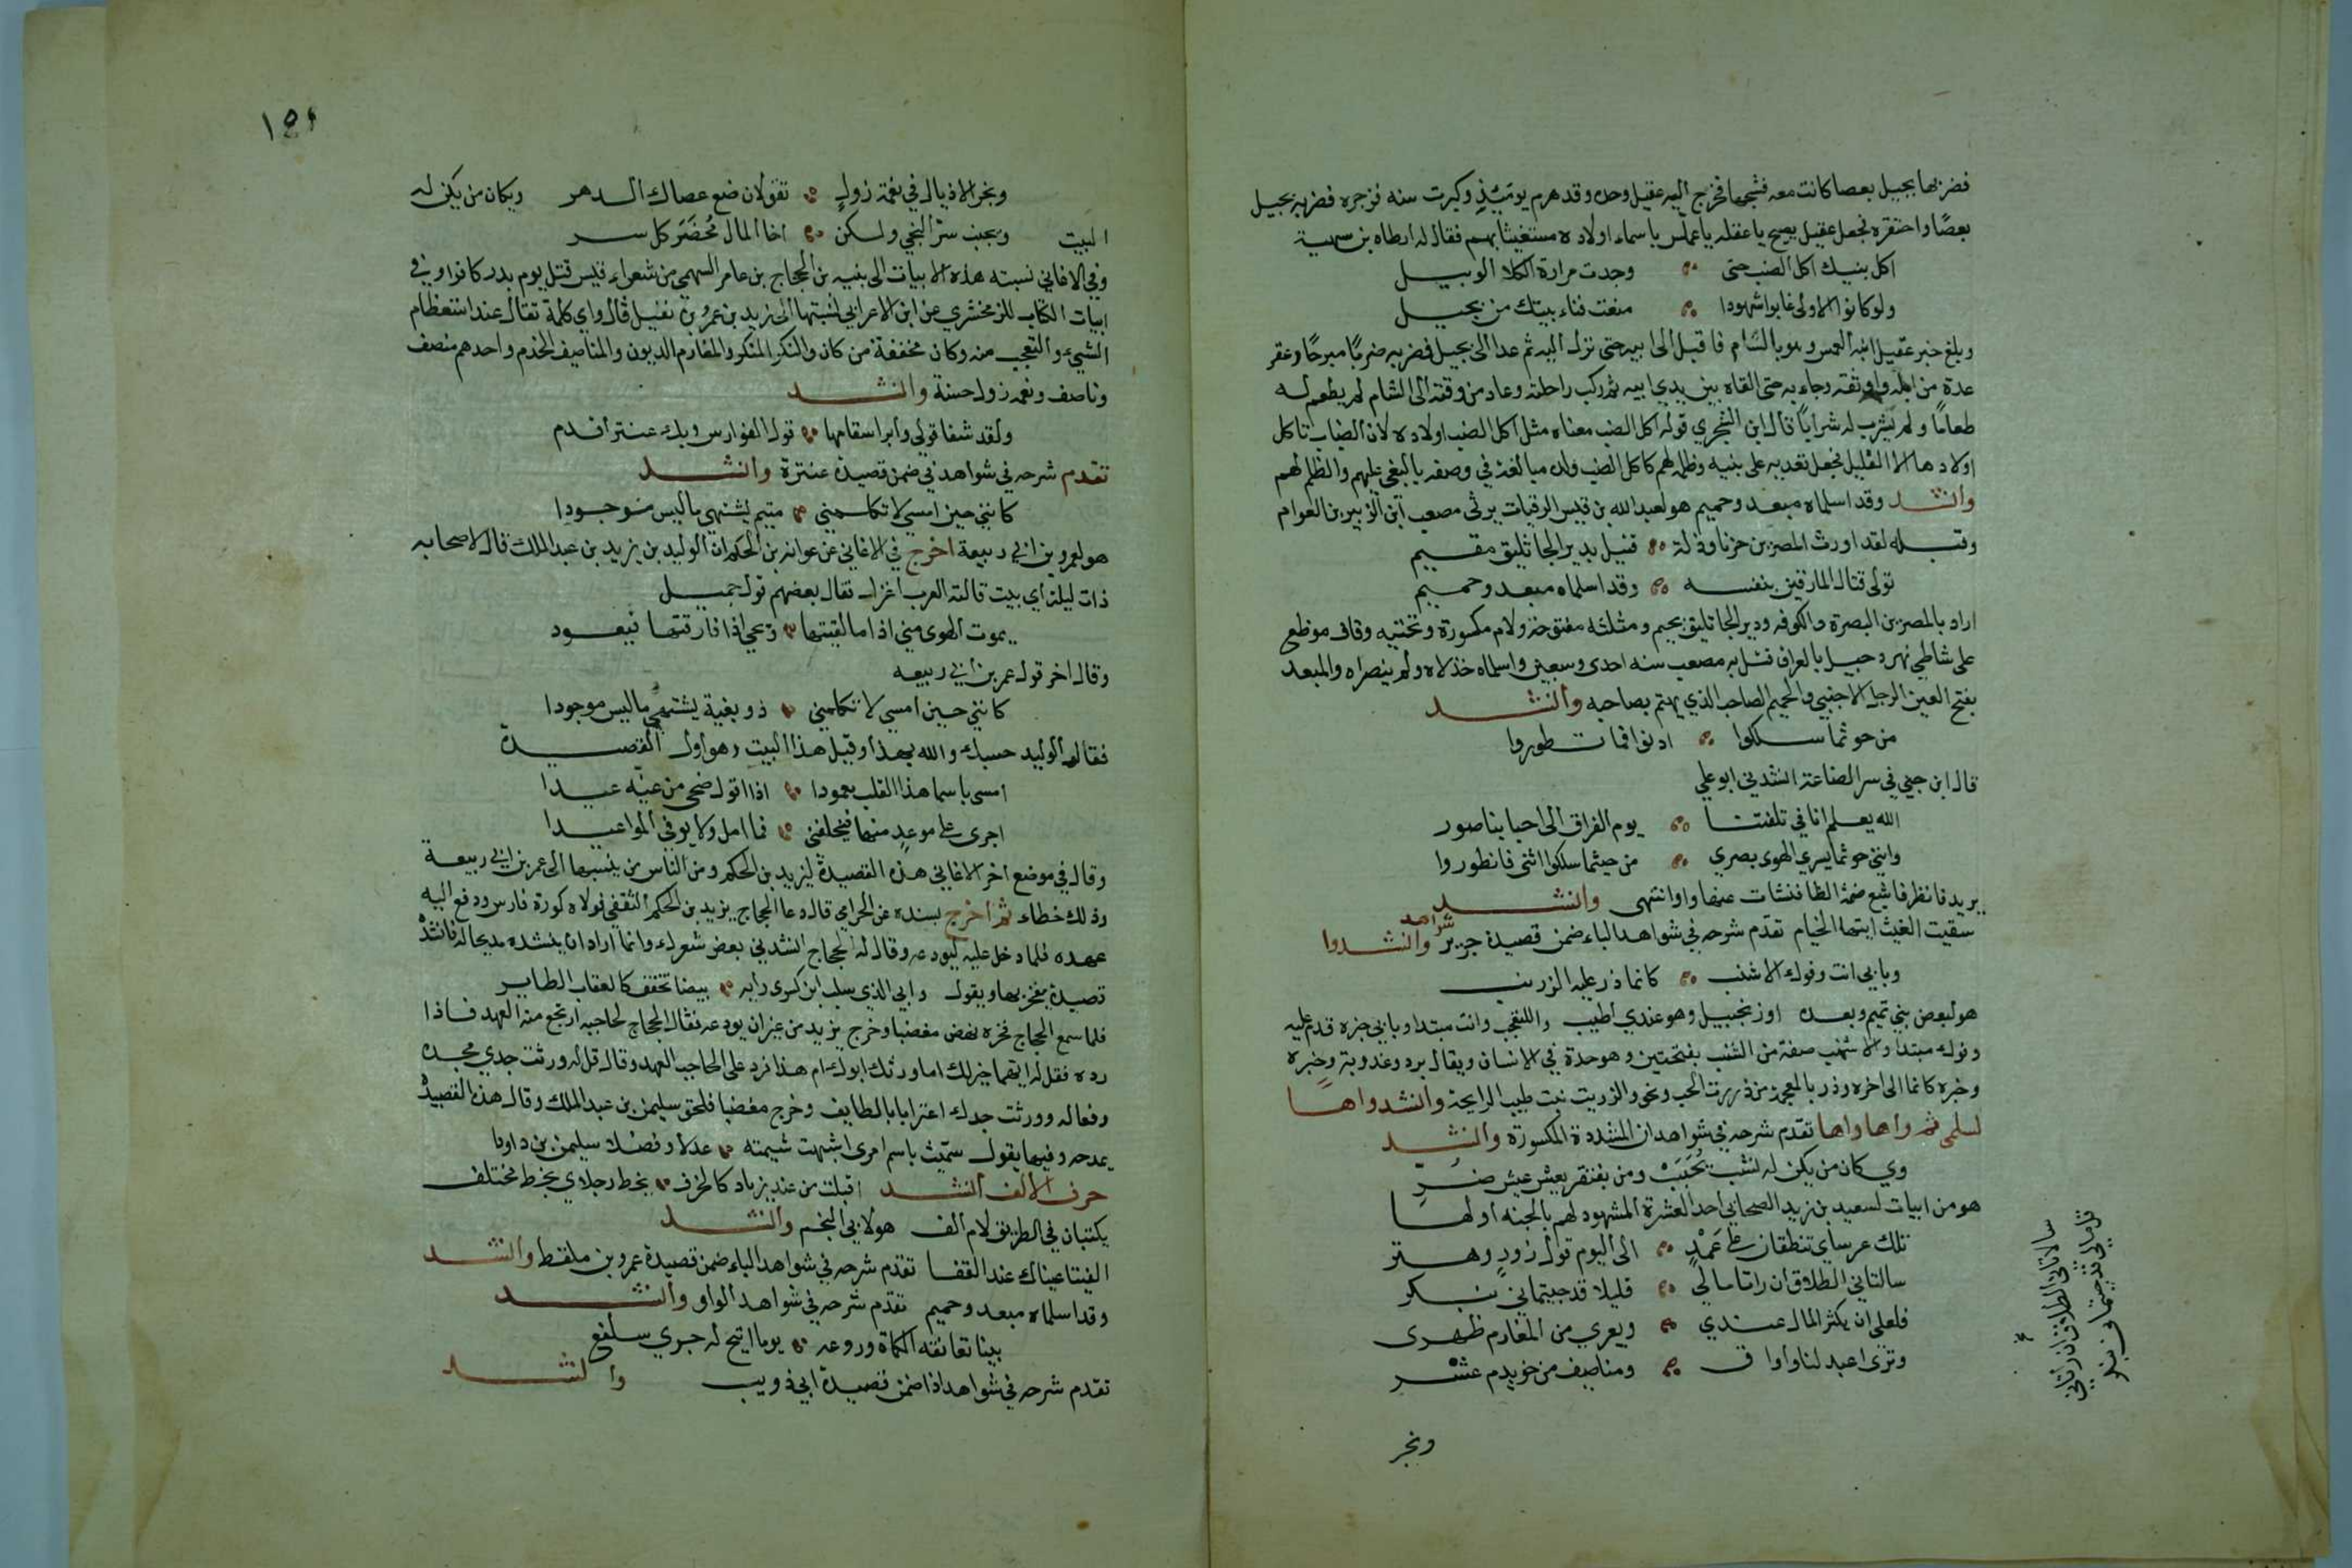 فضربها بجيل بعصا كانت معه فشجها فخرج اليه عقيل وحده وقد هرم يومئذ وكبرت سنه فزجره فضربه بجيل
بعصا واحتقره فجعل عقيل يصيح يا عقله يا عملس باسماء اولاده مستغيثا بهم فقال له ارطاه بن سهية
اكل بنيك اكل الضب حتى وجدت مرارة الكلا الوبيل
ولو كانوا الاولى غابوا شهودا منعت فناء بيتك من بجيل
وبلغ خبر عقيل ابنه العملس وهو بالشام فاقبل الى ابيه حتى نزل اليه ثم عدا الى بجيل فضربه ضربا مبرحا وعقر
عدة من ابله واوثقه وجاء به حتى القاه بين يدي ابيه ثم ركب راحلته وعاد من وقته الى الشام لم يطعم له
طعاما ولم يشرب له شرابا قال ابن الشجري قوله اكل الضب معناه مثل اكل الضب اولاده لان الضباب تاكل
اولادها الا القليل فجعل تعديه على بنيه وظلمه لهم كاكل الضب ولده مبالغة في وصفه بالبغي عليهم والظلم لهم
وانشد وقد اسلماه مبعد وحميم هو لعبد الله بن قيس الرقيات يرثى مصعب ابن الزبير بن العوام
وقبله لقد اورث المصرين حزنا وذلة قتيل بدير الجاثليق مقيم
تولى قتال المارقين بنفسه وقد اسلماه مبعد وحميم
اراد بالمصرين البصرة والكوفه ودير الجاثليق بجيم ومثلثه مفتوحة ولام مكسورة وتحتيه وقاف موظع
على شاطى نهر دجيل بالعراق قتل به مصعب سنه احدى وسبعين واسلماه خذلاه ولم ينصراه والمبعد
بفتح العين الرجل الاجنبي والحميم الصاحب الذي يهتم بصاحبه وانشد
من حوثما سلكوا ادنوا فانظوروا
قال ابن جني في سر الصناعة انشدني ابو علي
الله يعلم انا في تلفتنا يوم الفراق الى احبابنا صور
وانني حوثما يسري الهوى بصري من حيثما سلكوا اثني فانظوروا
يريد فانظر فاشبع ضمة الظا فنشات عنها واوا انتهى وانشد
سقيت الغيث ايتها الخيام تقدم شرحه في شواهد الباء ضمن قصيدة جرير شواهد وا وانشدوا
وبابي انت وفوك الاشنب كانما ذر عليه الزرنب
هو لبعض بني تميم وبعده او زنجبيل وهو عندي اطيب وا للتعجب وانت مبتدا وبابي خبره قدم عليه
وفوك مبتدا والاشنب صفة من الشنب بفتحتين وهو حدة في الاسنان ويقال برد وعذوبة وخبره
وخبره كانما الى اخره وذر بالمعجمة من ذررت الحب ونحوه والزرنب نبت طيب الرايحة وانشد واها
لسلمى ثم واها واها تقدم شرحه في شواهد ان المشددة المكسورة وانشد
وي كان من يكن له نشب يحبب ومن يفتقر يعش عيش ضر
هو من ابيات لسعيد بن زيد الصحابي احد العشرة المشهود لهم بالجنه اولها
تلك عرساي تنطقان على عمد الى اليوم قول زور وهتر
سالتاني الطلاق ان راتا مالي قليلا قد جيتماني بنكر
فلعلي ان يكثر المال عندي ويعرى من المغارم ظهرى
وترى اعبد لنا واواق ومناصيف من خويدم عشر
ونجر
سالتاني الطلاق ان راتاني
قل مالي قد جيتماني بنكر
١٥٤
ونجر الاذيال في نعمة زول تقولان ضع عصاك الدهر ويكان من يكن له
البيت ويجنب سر النجي ولكن اخا المال محضر كل سر
وفي الاغاني نسبته هذه الابيات الى نبيه بن الحجاج بن عامر السهمي من شعراء قريش قتل يوم بدر كافرا وفي
ابيات الكتاب للزمخشري عن ابن الاعرابي نسبتها الى زيد بن عمرو بن نفيل قال واي كلمة تقال عند استعظام
الشيء والتعجب منه وكان مخففة من كان والنكر المنكر والمغارم الديون والمناصيف الخدم واحدهم منصف
وناصف ونعمه زول حسنة وانشد
ولقد شفا قولي وابرا سقامها قول الفوارس ويك عنتر اقدم
تقدم شرحه في شواهد في ضمن قصيدة عنترة وانشد
كانني حين امسي لا تكلمني متيم يشتهي ما ليس موجودا
هو لعمرو بن ابي ربيعة اخرج في الاغاني عن عوانه بن الحكم ان الوليد بن يزيد بن عبد الملك قال لاصحابه
ذات ليلة اي بيت قالته العرب اغزل فقال بعضهم قول جميل
يموت الهوى مني اذا ما لقيتها ويحيى اذا فارقتها فيعود
وقال اخر قول عمر بن ابي ربيعه
كانني حين امسي لا تكلمني ذو بغية يشتهي ما ليس موجودا
فقال الوليد حسبك والله بهذا وقبل هذا البيت وهو اول القصيدة
امسى باسما هذا القلب معمودا اذا اقول صحى من غيه عيدا
اجرى على موعد منها فيخلفني فما امل ولا يوفي المواعيدا
وقال في موضع اخر الاغاني هذه القصيدة ليزيد بن الحكم ومن الناس من ينسبها الى عمر بن ابي ربيعة
وذلك خطاء ثم اخرج بسنده عن الحزامي قال دعا الحجاج يزيد بن الحكم الثقفي فولاه كورة فارس ودفع اليه
عهده فلما دخل عليه ليودعه وقال له الحجاج انشدني بعض شعرك وانما اراد ان ينشده مديحا له فانشده
قصيدة يفخر بها ويقول وابي الذي سلب ابن كسرى رايه بيضا تخفق كالعقاب الطاير
فلما سمع الحجاج فخره نهض مغضبا وخرج يزيد من غير ان يودعه فقال الحجاج لحاجبه ارتجع منه العهد فاذا
رده فقل له ايهما خير لك اما ورثك ابوك ام هذا فرد على الحاجب العهد وقال قل له ورثت جدي مجده
وفعاله وورثت جدك اعنزا بالطايف وخرج مغضبا فلحق سليمن بن عبد الملك وقال هذه القصيدة
يمدحه وفيها يقول سميت باسم امرى اشبهت شيمته عدلا وفضلا سليمن بن داودا
حرف الالف انشد اقبلت من عند زياد كالخرف تخط رجلاي بخط مختلف
يكتبان في الطريق لام الف هو لابي النجم وانشد
الفيتا عيناك عند القفا تقدم شرحه في شواهد الباء ضمن قصيدة عمرو بن ملقط وانشد
وقد اسلماه مبعد وحميم تقدم شرحه في شواهد الواو وانشد
بينا تعانقه الكماة وروغه يوما اتيح له جري سلفع
تقدم شرحه في شواهد اذا ضمن قصيدة ابي ذويب وانشد